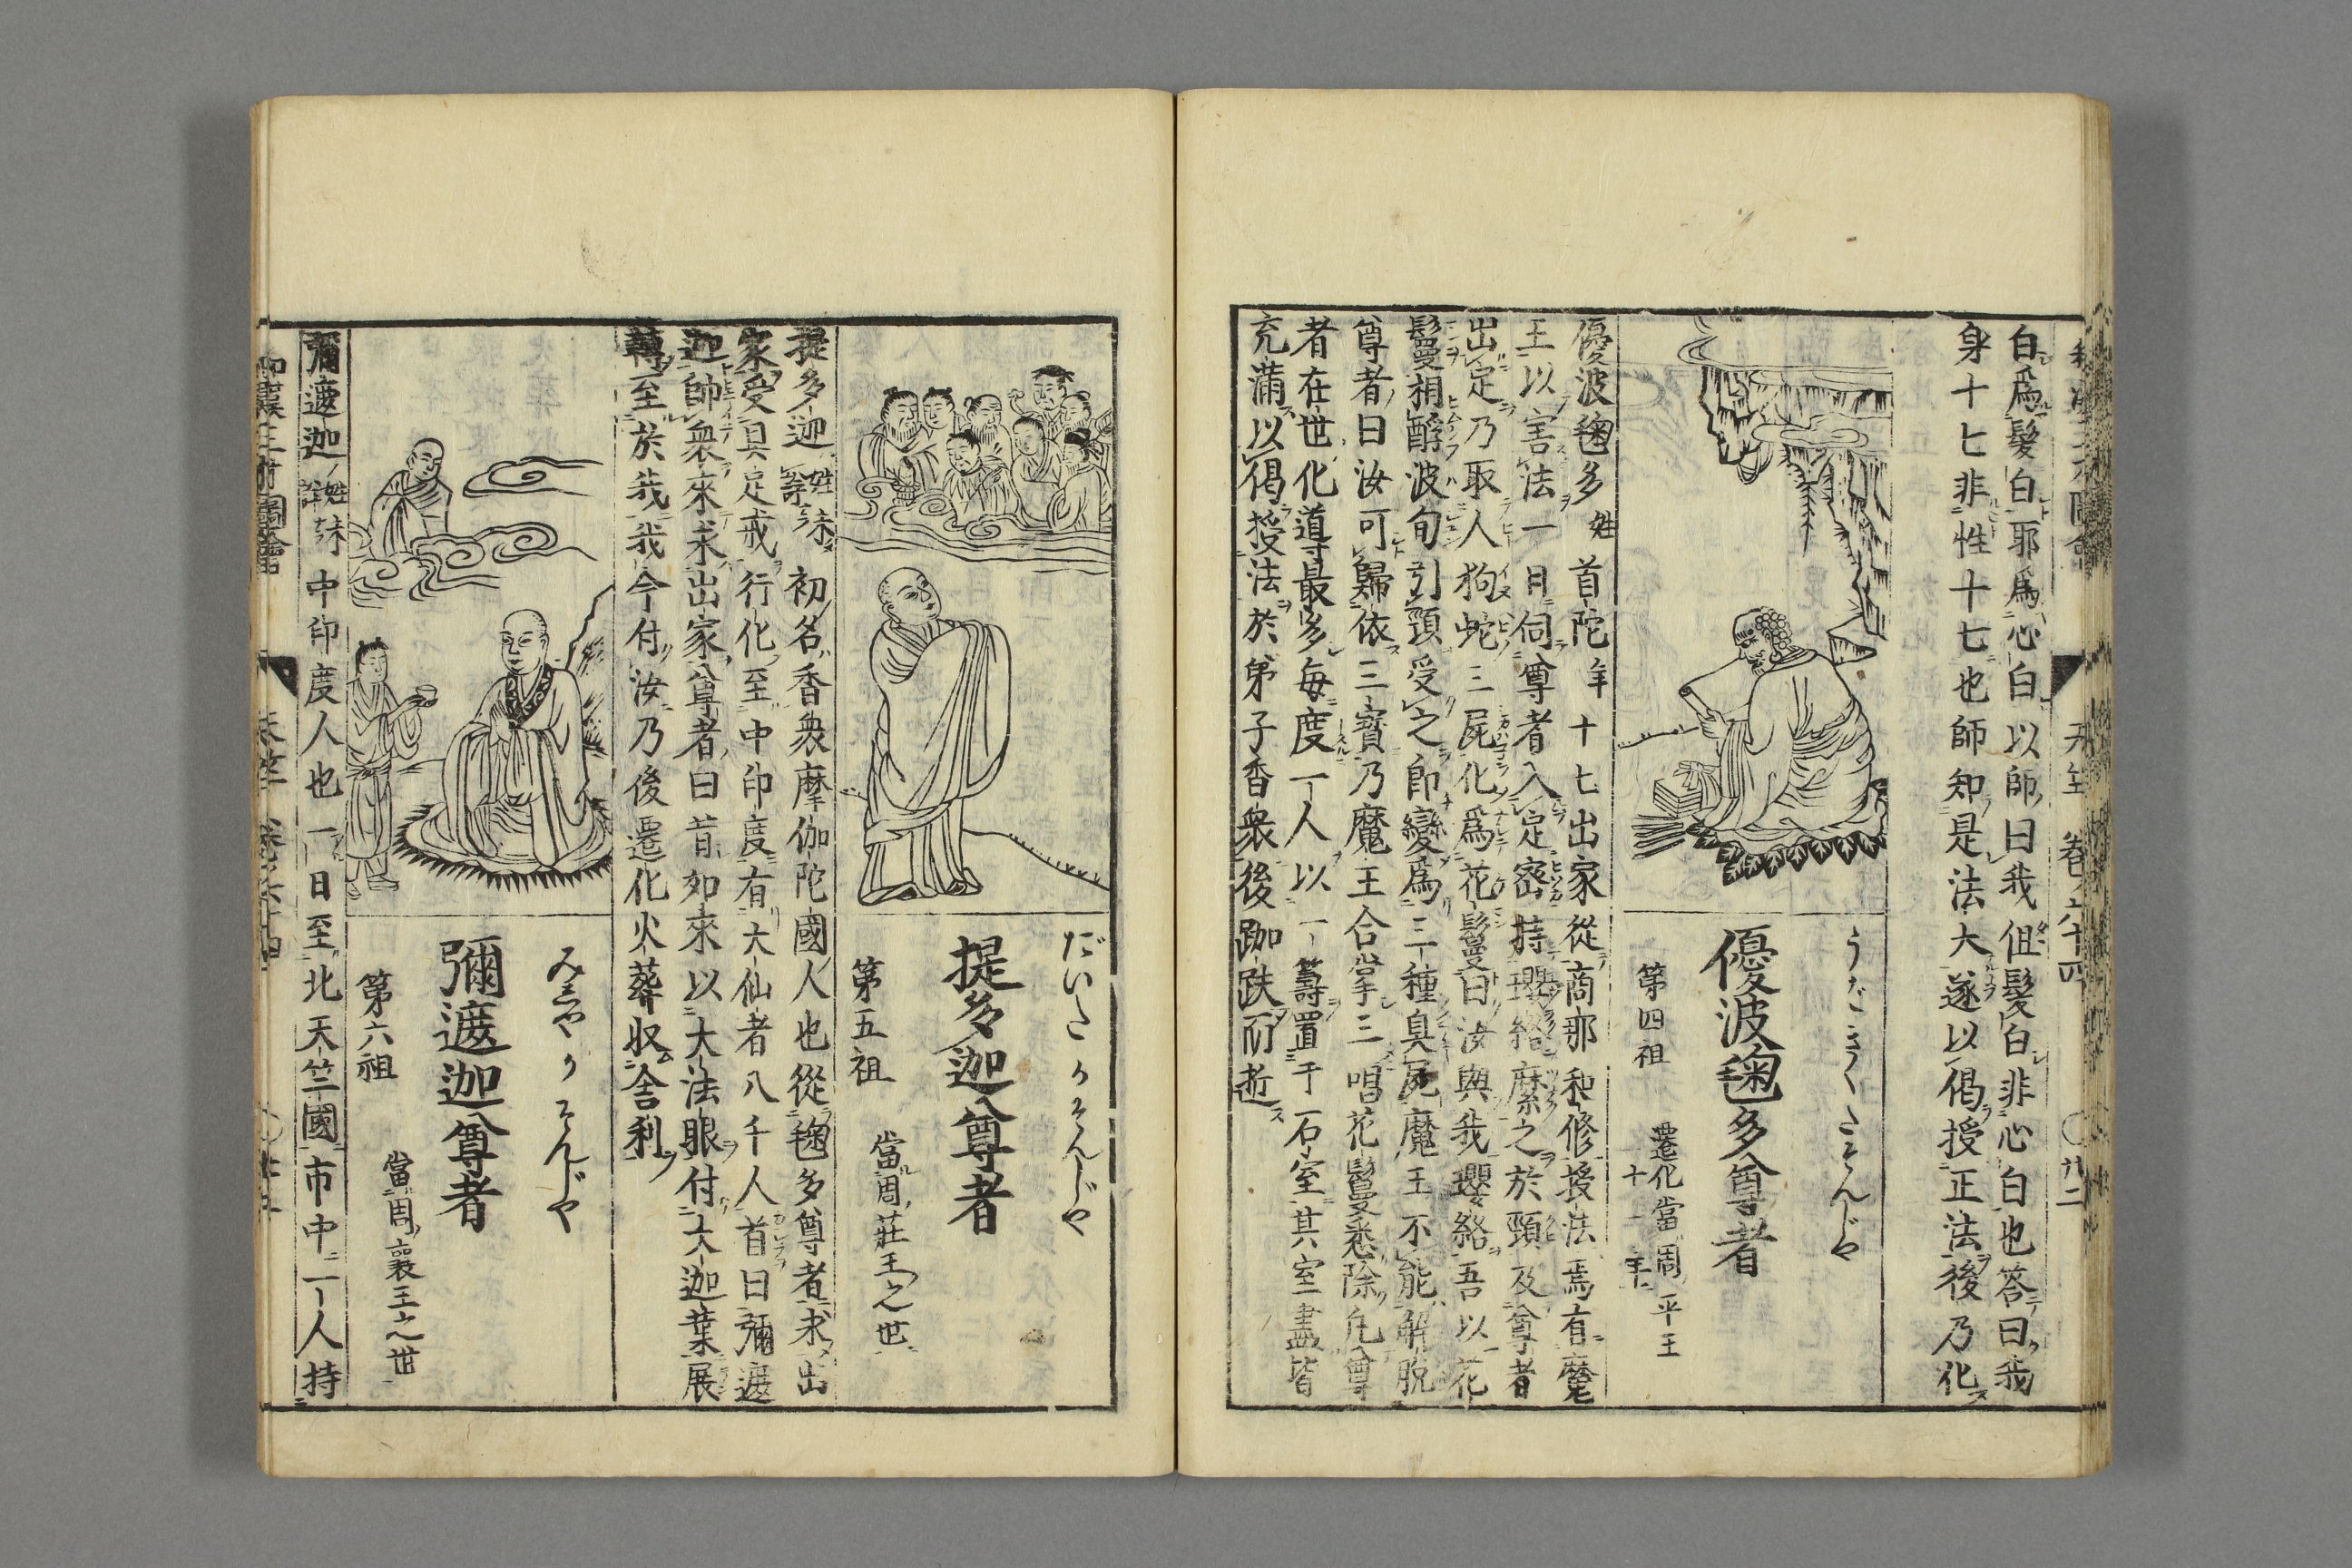 天竺 卷ノ六十四 〇廿二
白爲髮白耶爲心白以師曰我但髮白非心白也答曰我
身十七非性十七也師知是法大遂以偈授正法後乃化
うだきくたそんじや
優波毱多尊者
第四祖
遷化當周平王
十一年
優波毱多姓首陀年十七出家從商那和修授法焉有魔
王以害法一日伺尊者入定密持瓔絡縻之於頸及尊者
出定乃取人狗蛇三屍化爲花鬘曰汝與我瓔絡吾以花
鬘相酧波旬引頸受之卽變爲三種臭屍魔王不能解脫
尊者曰汝可歸依三寶乃魔王合掌三唱花鬘悉除凢尊
者在世化導最多毎度一人以一籌置于石室其室盡皆
充滿以偈授法於弟子香衆後跏趺而逝
だいたかそんじや
提多迦尊者
第五祖
當周莊王之世
提多迦姓未詳 初名香衆摩伽陀國人也從毱多尊者求出
家受具足戒行化至中印度有大仙者八千人首曰彌遮
迦帥衆來求出家尊者曰昔如來以大法眼付大迦葉展
轉至於我我今付汝乃後遷化火葬収舎利
みしやかそんじや
彌遮迦尊者
第六祖
當周襄王之世
彌遮迦姓未詳 中印度人也一日至北天竺國市中一人持